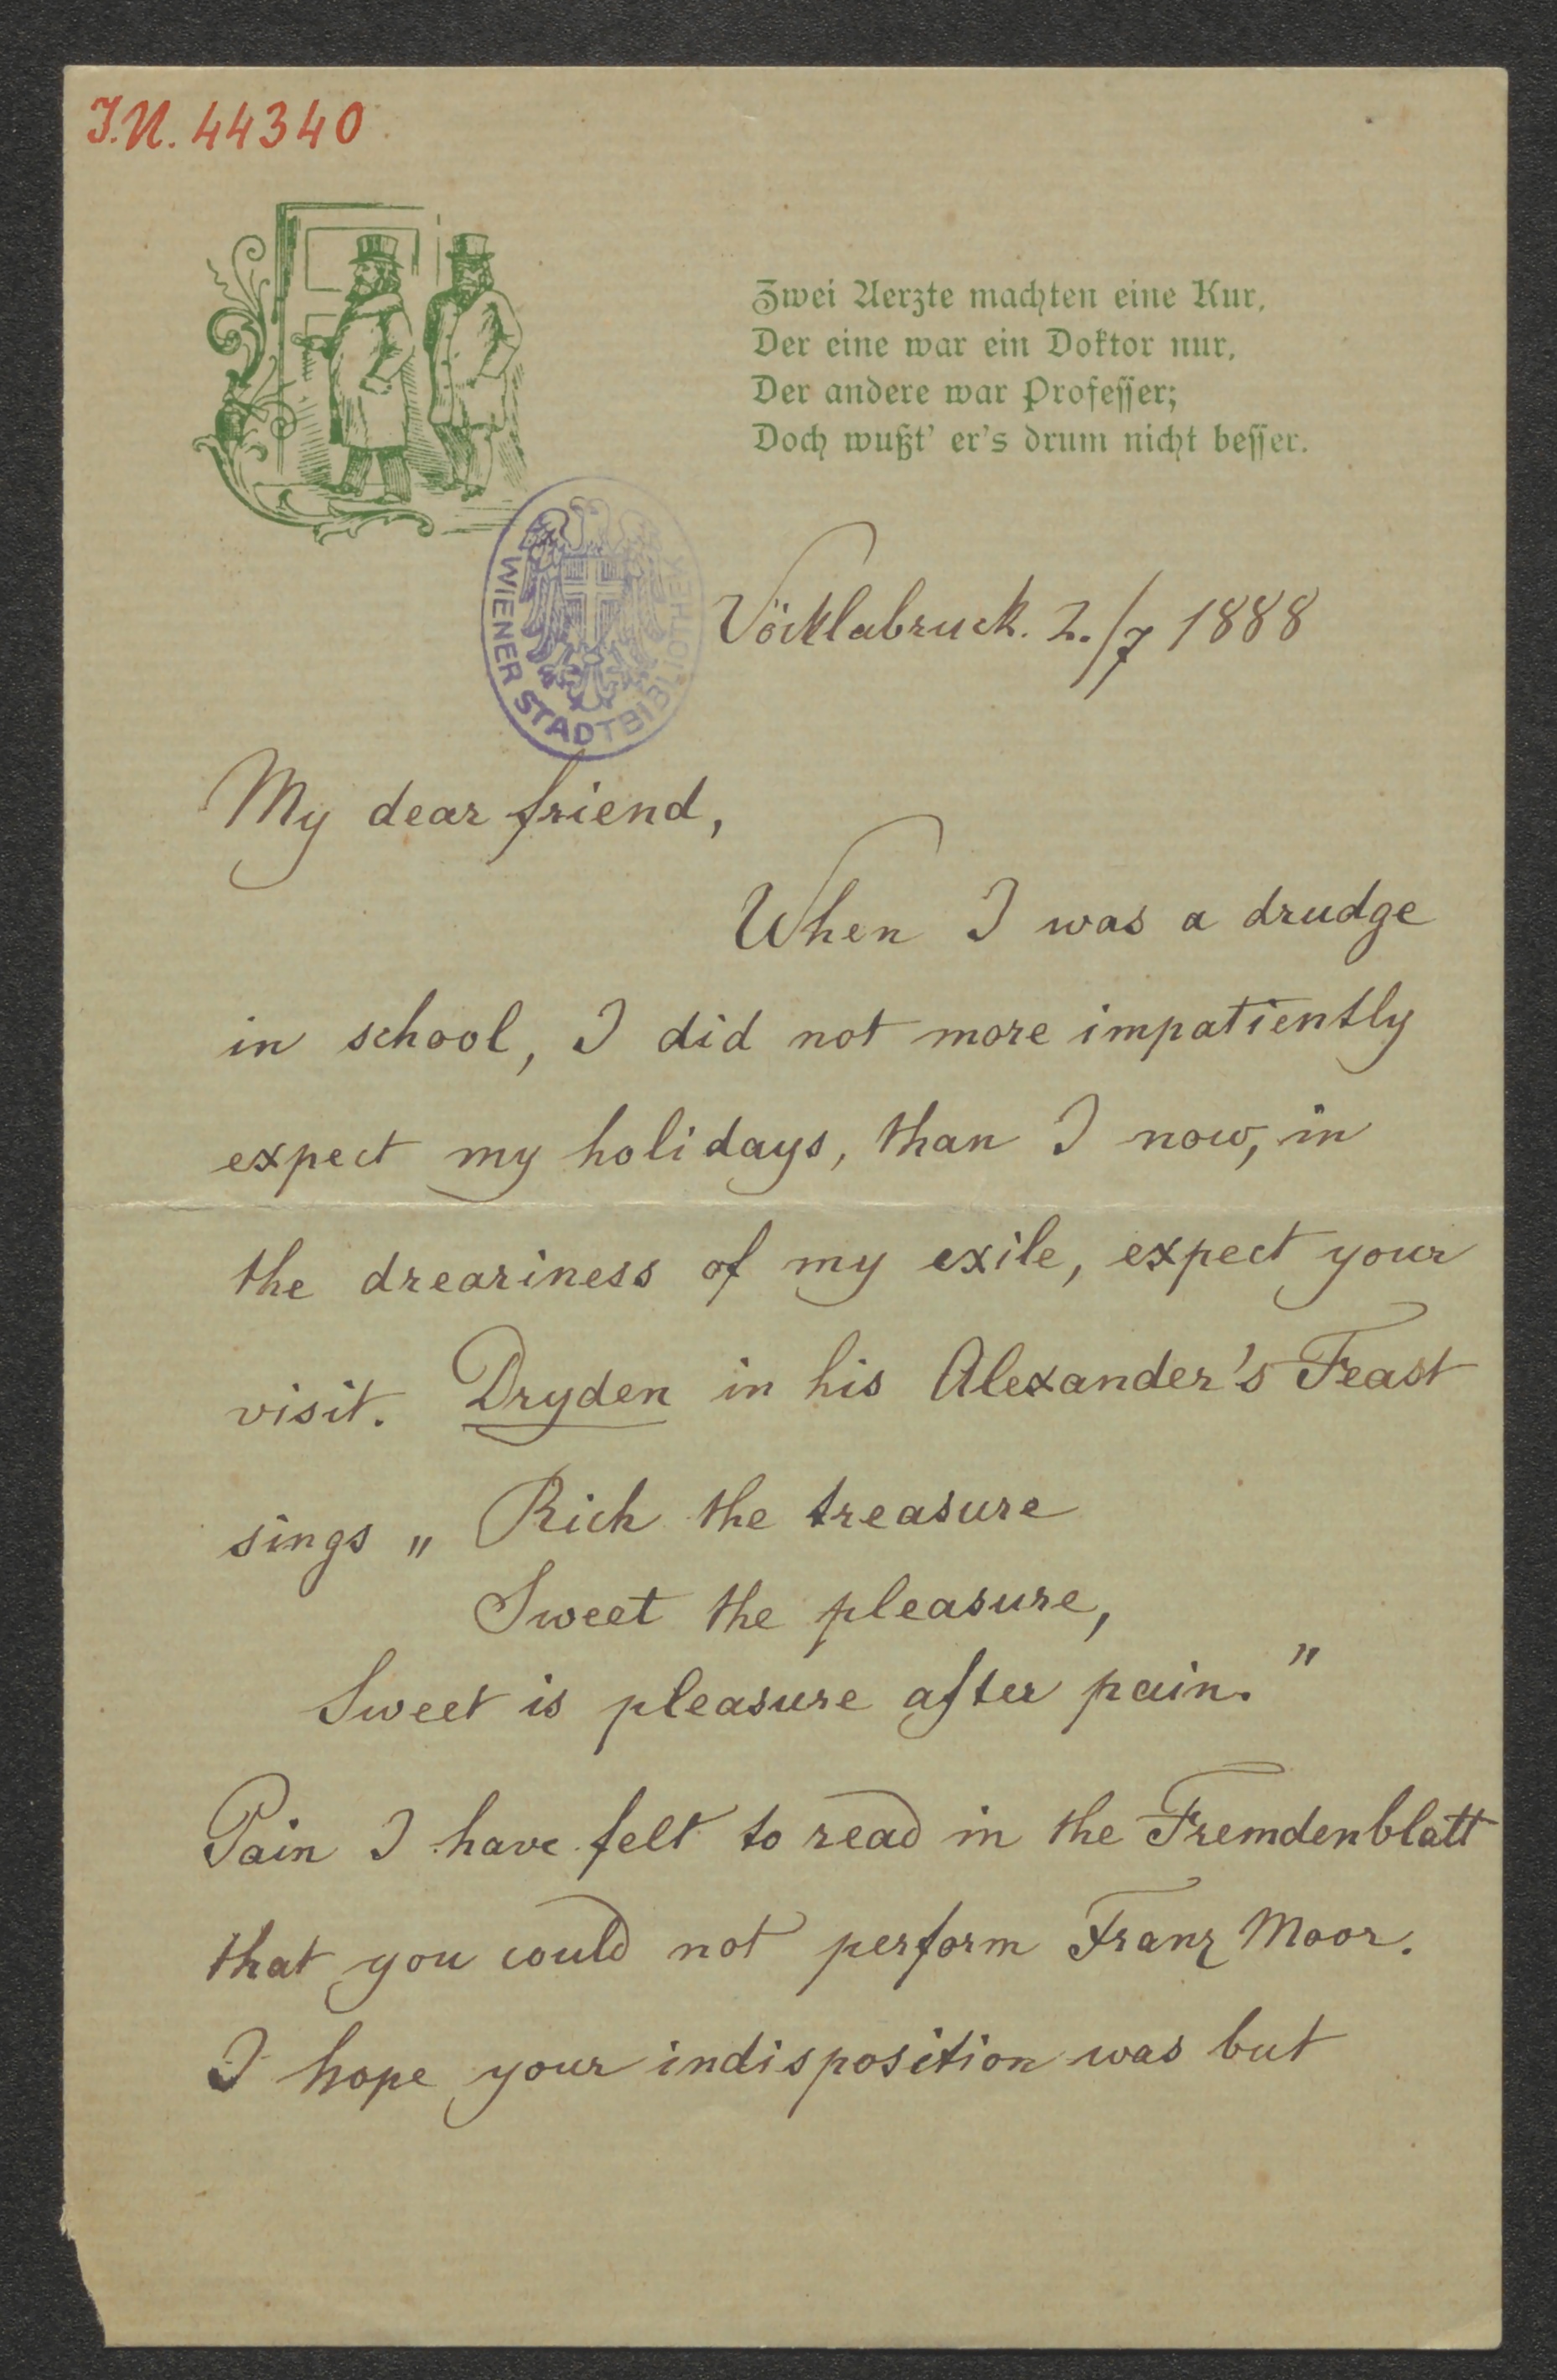 J.N. 44340
Zwei Aerzte machten eine Kur,
Der eine war ein Doktor nur,
Der andere war Professer;
Doch wußt' er's drum nicht besser.
WIENER STADTBIBLIOTHEK
Vöcklabruck. 2./7 1888
My dear friend,
When I was a drudge
in school, I did not more impatiently
expect my holidays, than I now, in
the dreariness of my exile, expect your
visit. Dryden in his Alexander's Feast
sings „ Rich the treasure
Sweet the pleasure,
Sweet is pleasure after pain."
Pain I have felt to read in the Fremdenblatt
that you could not perform Franz Moor.
I hope your indisposition was but